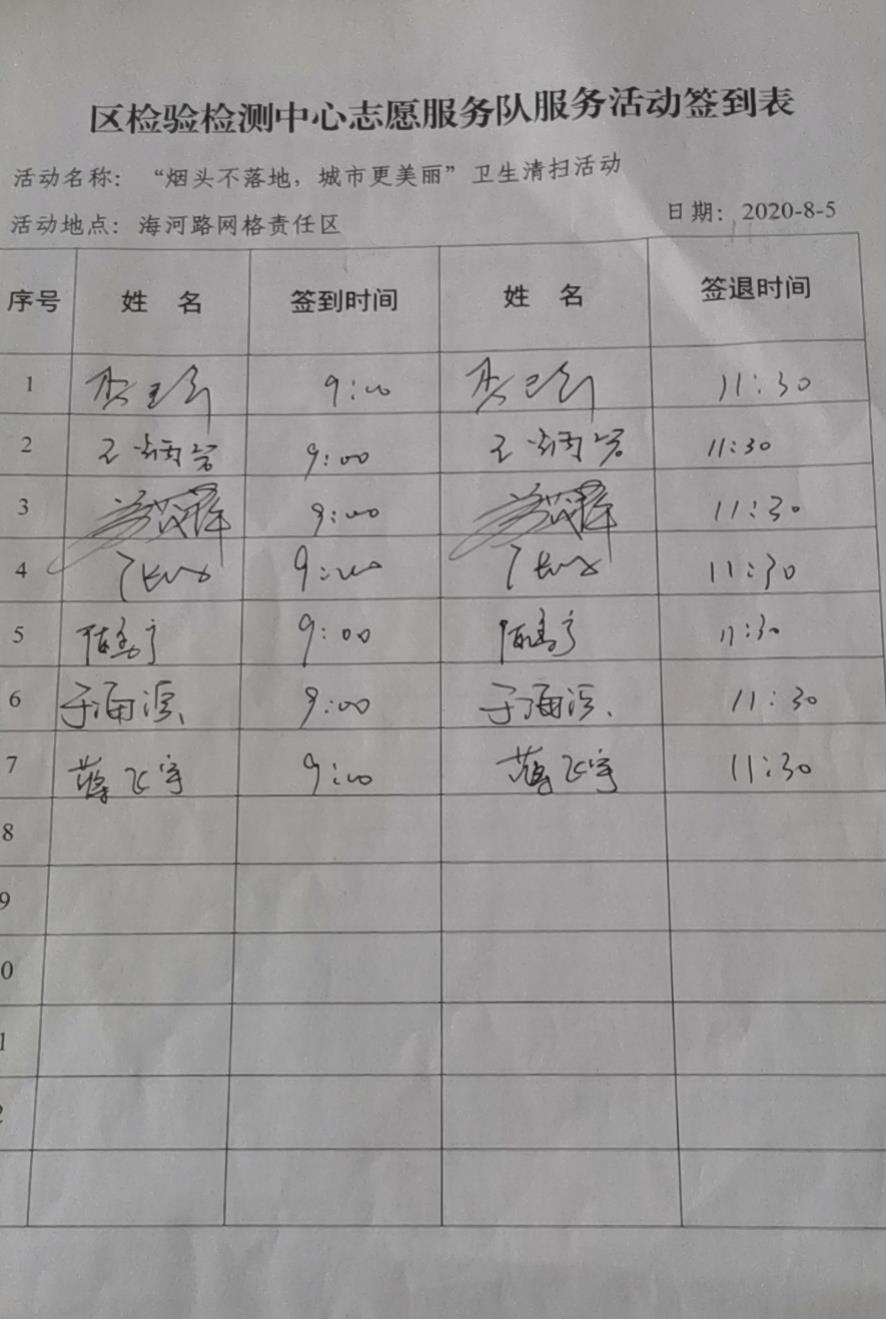 区检验检测中心志愿服务队服务活动签到表
活动名称：“烟头不落地，城市更美丽”卫生清扫活动
活动地点：海河路网格责任区 日期：2020-8-5
序号 姓名 签到时间 姓名 签退时间
1 9:00 11:30
2 王炳岩 9:00 王炳岩 11:30
3 9:00 11:30
4 9:00 11:30
5 9:00 11:30
6 于海滨 9:00 于海滨 11:30
7 薄飞宇 9:00 薄飞宇 11:30
8
9
0
1
2